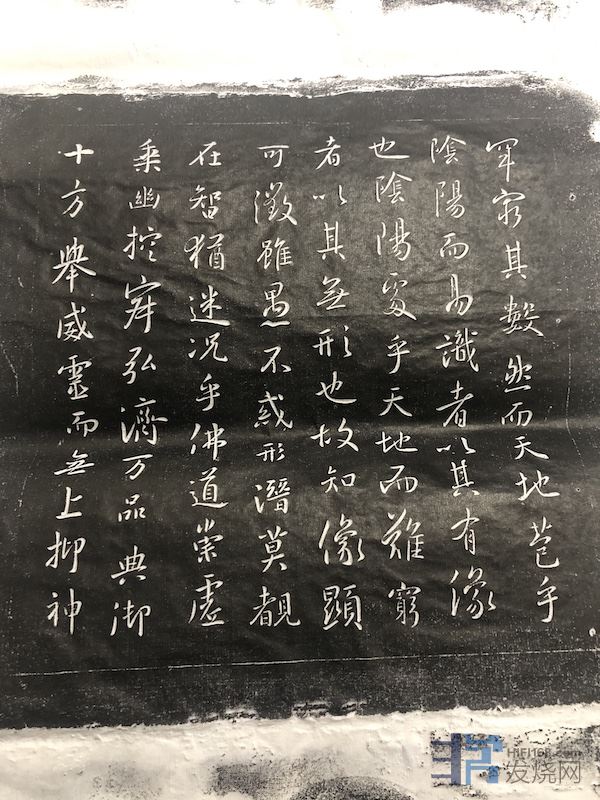 罕窮其數然而天地苞乎
陰陽而易識者以其有像
也陰陽處乎天地而難窮
者以其無形也故知像顯
可徵雖愚不惑形潛莫覩
在智猶迷况乎佛道崇虛
乘幽控寂弘濟万品典御
十方舉威靈而無上抑神
HIFI168.com
发烧网